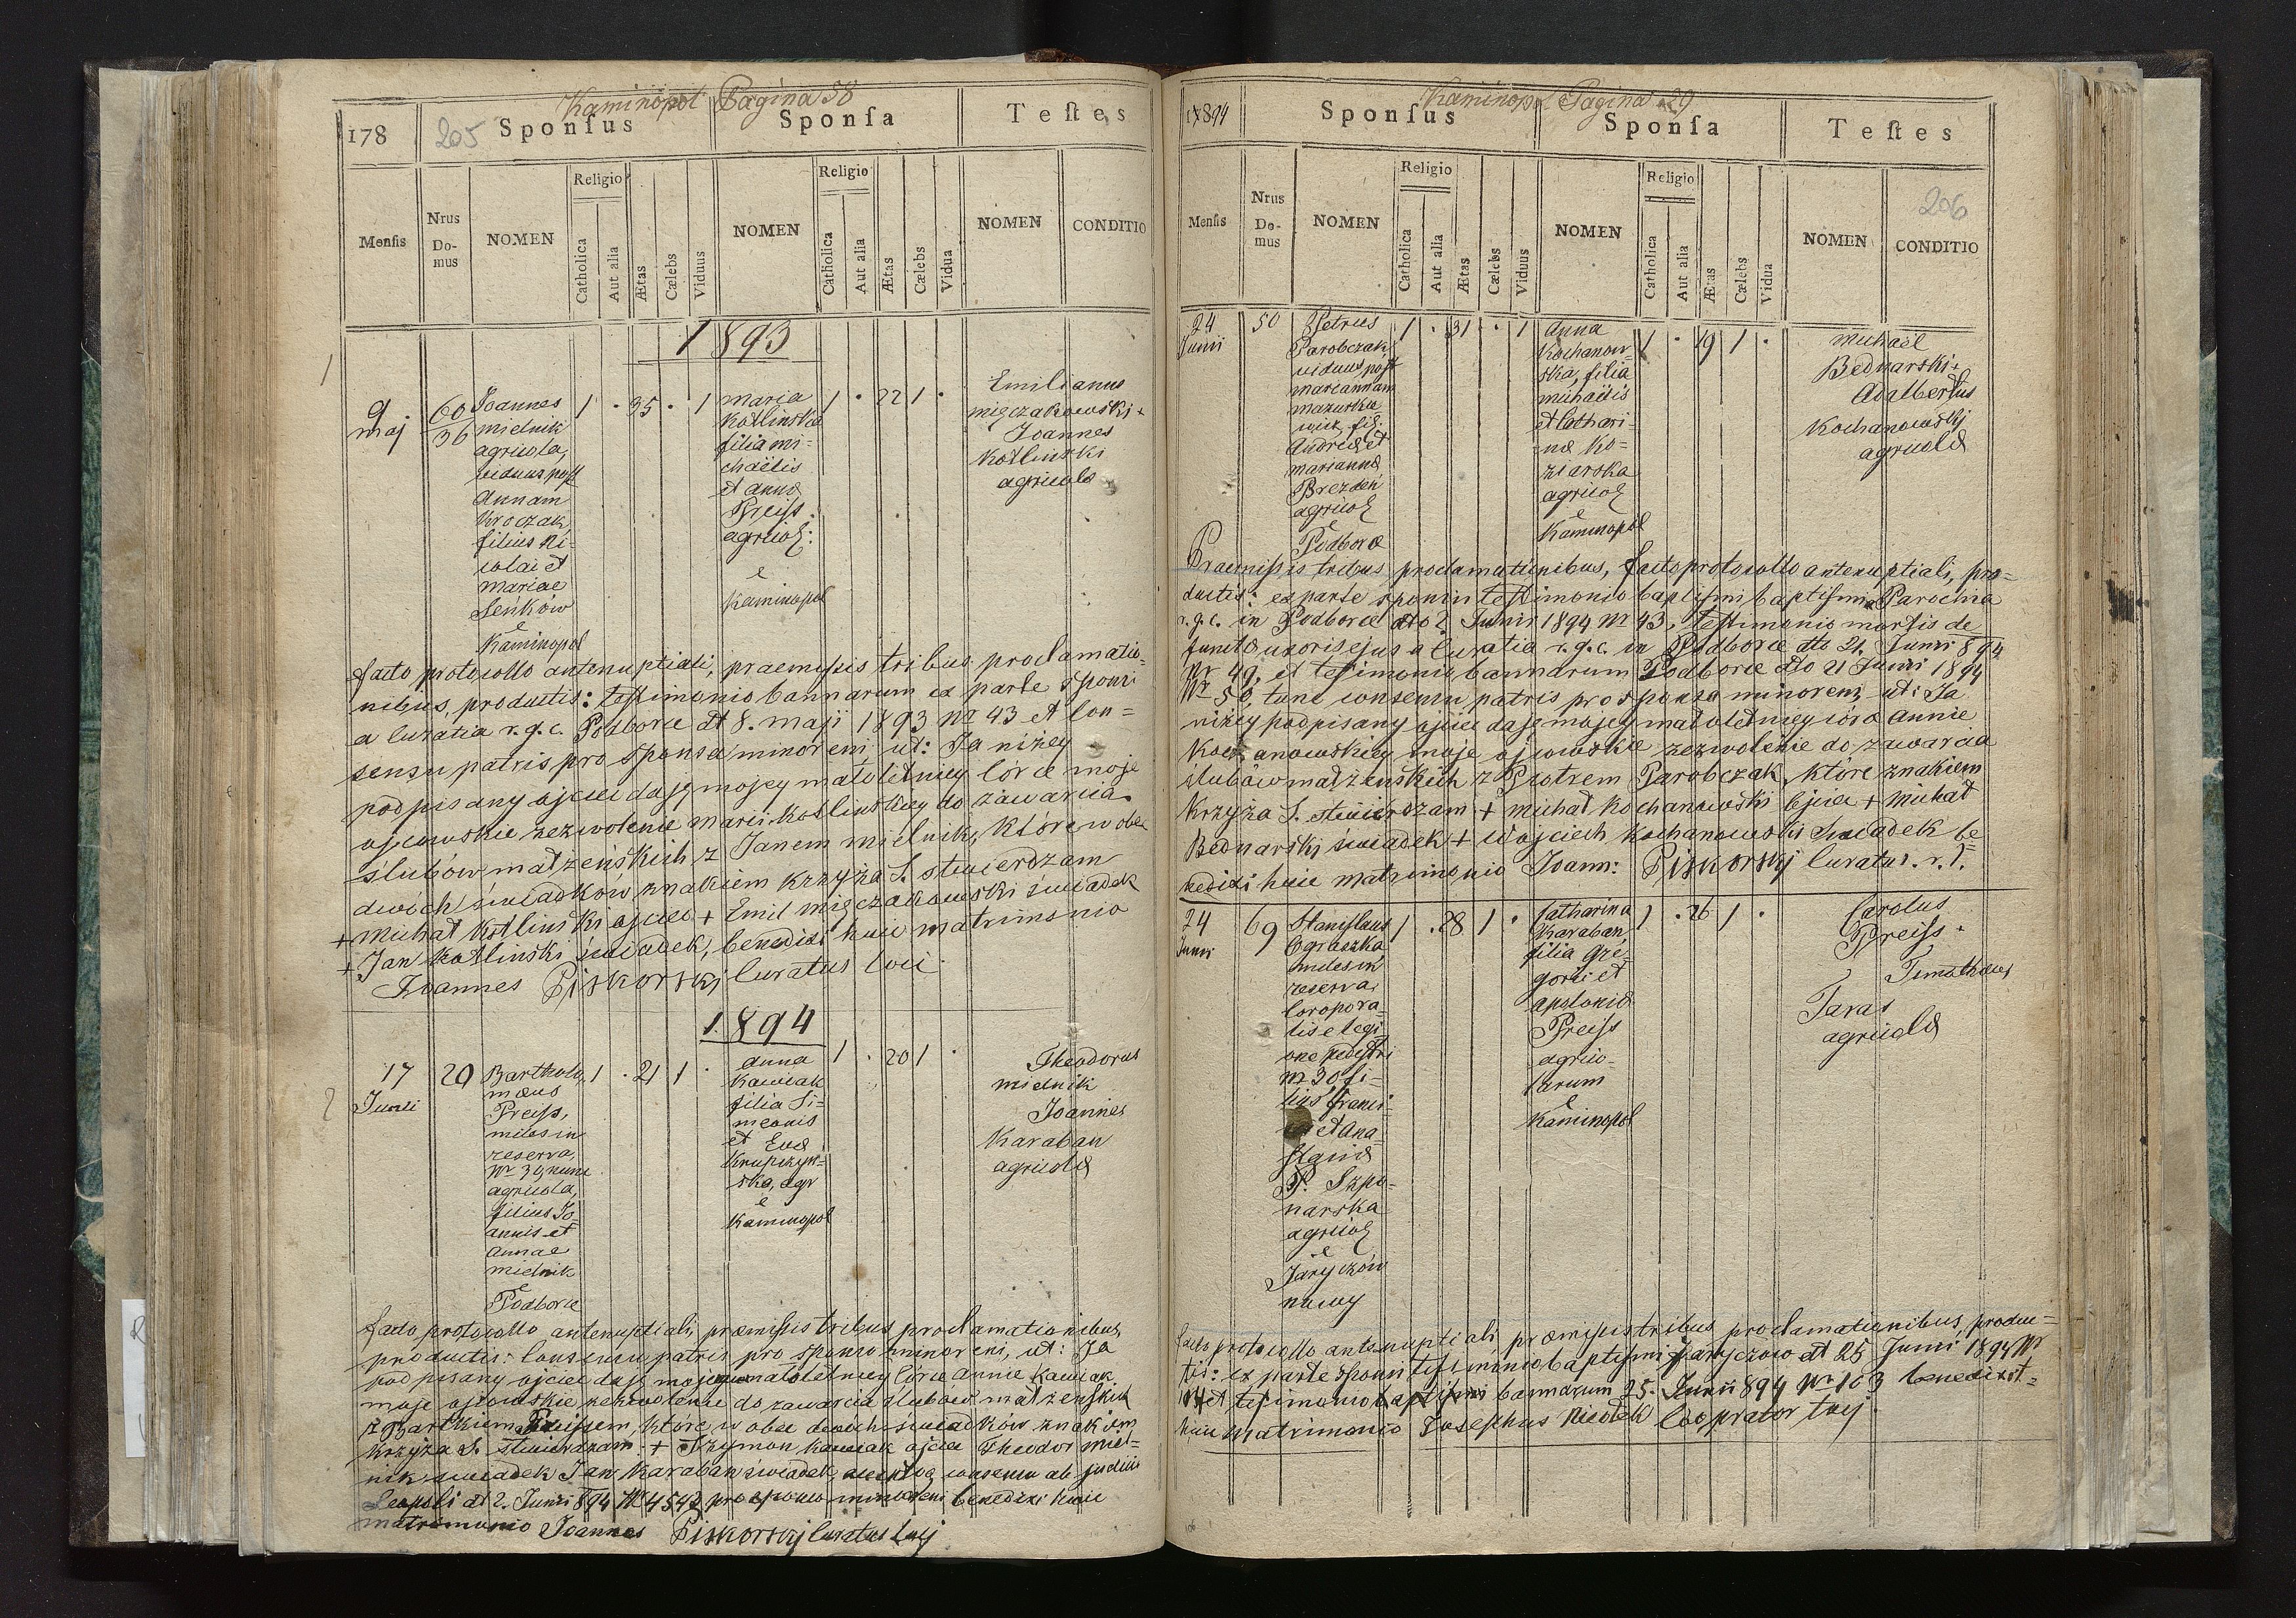 Kaminopol Pagina 38
178
205
Sponsus
Sponsa
Testes
Mensis
Nrus Domus
NOMEN
Religio
Catholica
Aut alia
Ætas
Cælebs
Viduus
NOMEN
Religio
Catholica
Aut alia
Ætas
Cælebs
Vidua
NOMEN
CONDITIO
1893
1
9
maj
60
36
Joannes
mielnik
agricola,
viduus post
Annam
Kroczak,
filius Ni-
colai et
Mariae
Seńków
e
Kaminopol
1 · 35 · 1
maria
Kotlinska
filia mi-
chaëlis
et annæ
Preiss
agricol:
e
Kaminopol
1 · 22 1 ·
Emilianus
mięczakowski +
Joannes
Kotlinski
agricolæ
facto protocollo antenuptiali, praemissis tribus proclamatio-
nibus, productis: testimonio bannarum ex parte sponsi
a Curatia r. g. c. Podborce dt 8. maji 1893 Nr 43 et con-
sensu patris pro sponsa minoreni ut: Ja niżey
podpisany ojciec daję mojey małoletniey córce moje
ojcowskie zezwolenie Marii Kotlinskiey do zawarcia
ślubów małżeńskich z Janem mielnik, które w obec
dwóch świadków znakiem krzyża S. stwierdzam
+ Michał Kotlinski ojciec + Emil mięczakowski świadek
+ Jan Kotlinski świadek, benedixi huic matrimonio
Joannes Piskorski Curatus loci
1894
2
17
Junii
29
Bartholo-
mæus
Preiss,
miles in
reserva
Nr 30, nunc
agricola,
filius Jo-
annis et
Annae
mielnik
e
Podborce
1 · 21 1 ·
Anna
Kawiak
filia Si-
meonis
et Evæ
Krupczyń-
ska, agr
e
Kaminopol
1 · 20 1 ·
Theodorus
mielnik
Joannes
Karaban
agricolæ
facto protocollo antenuptiali, præmissis tribus proclamationibus,
productis: consensu patris pro sponsa minoreni, ut: Ja
podpisany ojciec daję mojey małoletniey córce Annie Kawiak
moje ojcowskie zezwolenie do zawarcia ślubów małżeńskich
z Bartkiem Preissem, które w obec dwóch świadków znakiem
krzyża S. stwierdzam + Szymon Kawiak ojciec Theodor miel-
nik świadek Jan Karaban świadek, consensu ab judicio
Leopoli dt 2. Junii 894 Nr 4542 pro sponso minoreni benedixi huic
matrimonio Joannes Piskorskj Curatus loci
Kaminopol Pagina 29
17894
Sponsus
Sponsa
Testes
206
Mensis
Nrus Domus
NOMEN
Religio
Catholica
Aut alia
Ætas
Cælebs
Viduus
NOMEN
Religio
Catholica
Aut alia
Ætas
Cælebs
Vidua
NOMEN
CONDITIO
24
Junii
50
Petrus
Parobczak,
viduus post
mariannam
mazurkie
wicz, fil.
Andreæ et
mariannæ
Brezdeń
agricol
e
Podborce
1 · 31 · 1
Anna
Kochanow-
ska, filia
michaëlis
et Cathari-
næ Ko-
ziarska
agricol
e
Kaminopol
1 · 19 1 ·
Michaël
Bednarski +
Adalbertus
Kochanowskj
agricolæ
Praemissis tribus proclamationibus, facto protocollo antenuptiali, pro-
ductis: ex parte sponsi testimonio baptismi baptismi a Parochia
r. g. c. in Podborce dto 2 Junii 1894 Nr 43, testimonio mortis de
functæ uxoris ejus a Curatia r. g. c. in Podborce dto 21. Junii 894
Nr 49, et testimonio bannarum Podborce dto 21 Junii 1894
Nr 50, tunc consensu patris pro sponsa minoreni, ut: Ja
niżey podpisany ojciec daję mojey małoletniey córce Annie
Kochanowskiey moje ojcowskie zezwolenie do zawarcia
ślubów małżeńskich z Piotrem Parobczak, które znakiem
Krzyża S. stwierdzam + michał Kochanowski Ojciec + michał
Bednarski świadek + Wojciech Kochanowski Świadek be-
nedixi huic matrimonio Joann: Piskorskj Curatus. r. l.
24
Junii
69
Stanislaus
Ograszka
miles in
reserva,
Coropora-
lis e legi-
one pedestri
Nr 30 fi-
lius Franci-
et Ana-
stasiæ
P. Szpo-
narska
agricol
e
Jaryczów
nowy
1 · 28 1 ·
Catharina
Karaban,
filia Gre-
gorii et
apoloniæ
Preiss
agrico-
larum
e
Kaminopol
1 · 26 1 ·
Carolus
Preiss +
Timotheus
Taras
agricolæ
facto protocollo antenuptiali, præmissis tribus proclamationibus, produc-
tis: ex parte sponsi testimonio baptismi Jaryczów dt 25 Junii 1894 Nr
et testimonio bannarum 25. Junii 894 Nr 103 benedixit
huic matrimonio Josephus Niedek Cooprator loci